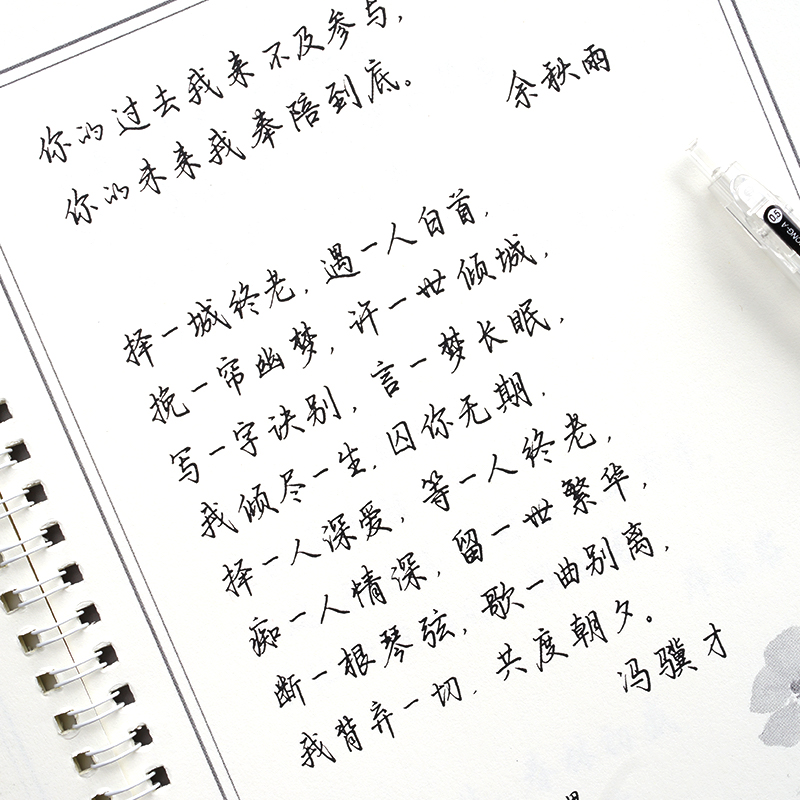 你的过去我来不及参与，
你的未来我奉陪到底。
余秋雨
择一城终老，遇一人白首，
挽一帘幽梦，许一世倾城，
写一字诀别，言一梦长眠，
我倾尽一生，囚你无期，
择一人深爱，等一人终老，
痴一人情深，留一世繁华，
断一根琴弦，歌一曲别离，
我背弃一切，共度朝夕。
冯骥才
0.5